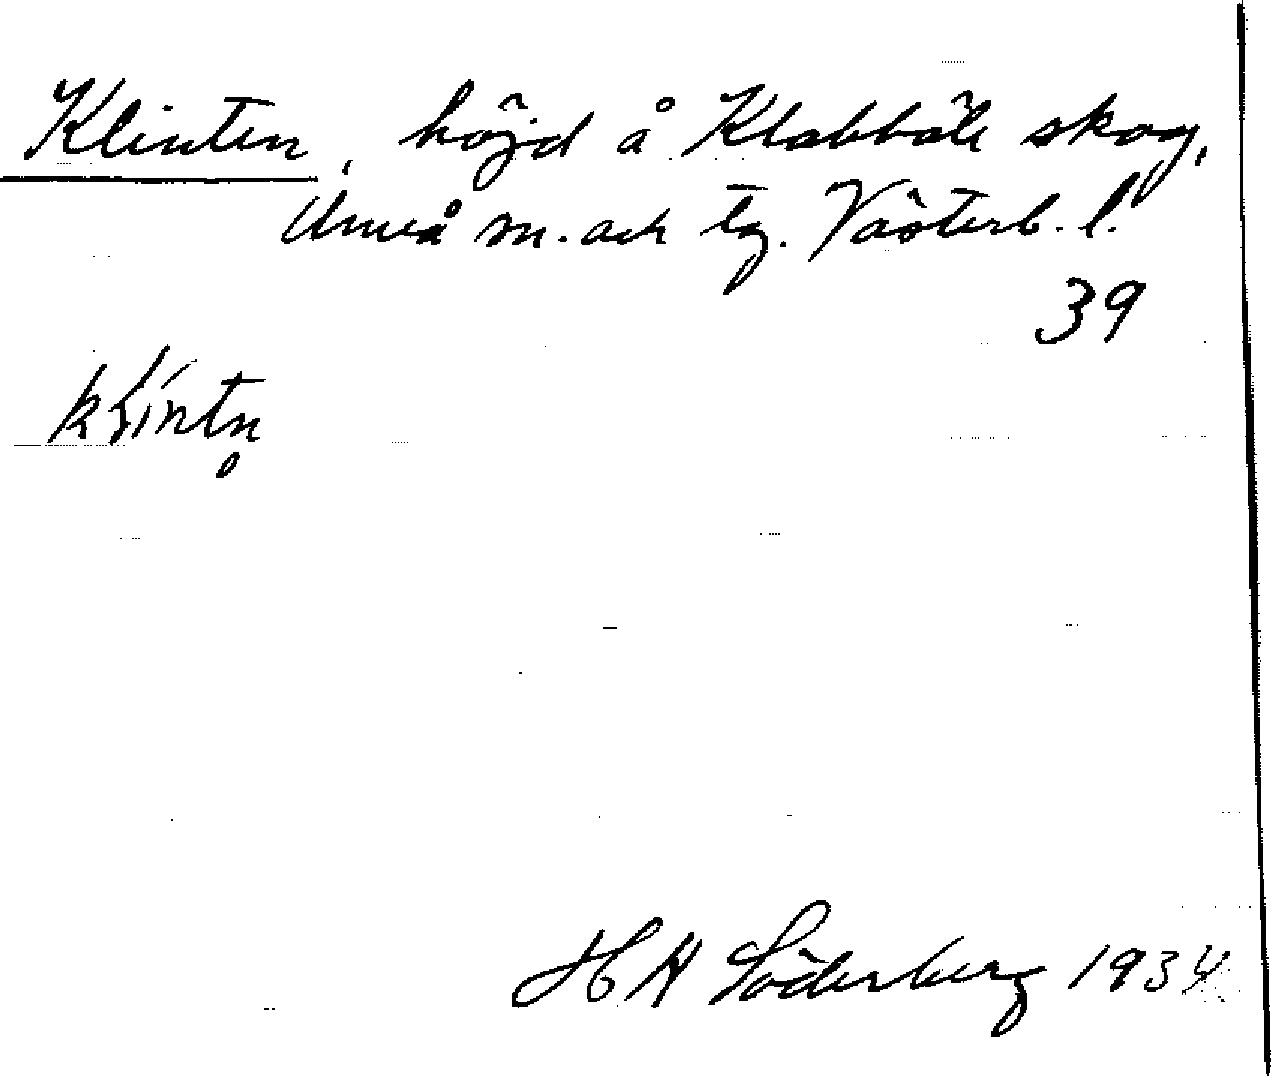 Klinten, höjd å Klabböle skog,
Umeå sn. och tg. Västerb. l.
39
klintn̥
H H Söderberg 1934